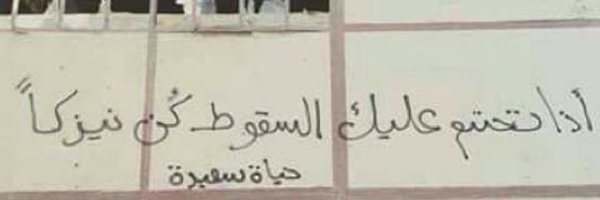 أذا تحتم عليك السقوط كُن نيزكاً
حياة سعيدة